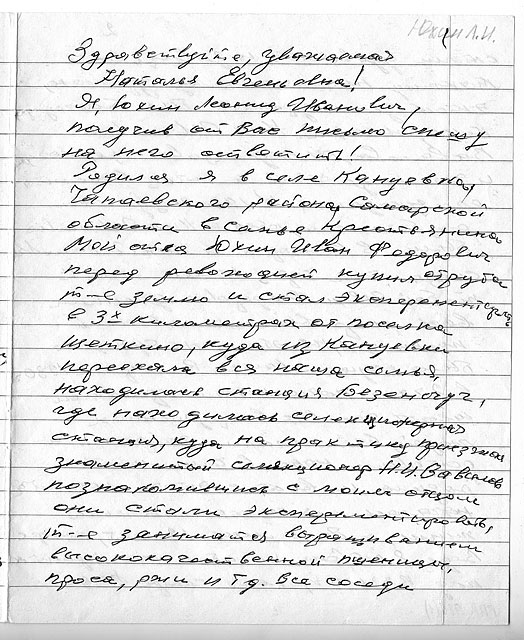 Юхин Л.И.
Здравствуйте, уважаемая
Наталья Евгеньевна!
Я, Юхин Леонид Иванович,
получив от Вас письмо спешу
на него ответить!
Родился я в селе Кануевка,
Чапаевского района, Самарской
области в семье крестьянина
Мой отец Юхин Иван Федорович
перед революцией купил отруба
т-е землю и стал эксперементиров.
в 3х километрах от поселка
Щеткино, куда из Кануевки
переехала вся наша семья,
находилась станция Безенчуг,
где находилась селекционерная
станция, куда на практику приезжал
знаменитый селекционер Н.И. Вавилов
познакомившись с моим отцом
они стали эксперементировать,
т-е заниматся выращиванием
высококачественной пшеницы,
проса, ржи и тд. все соседи